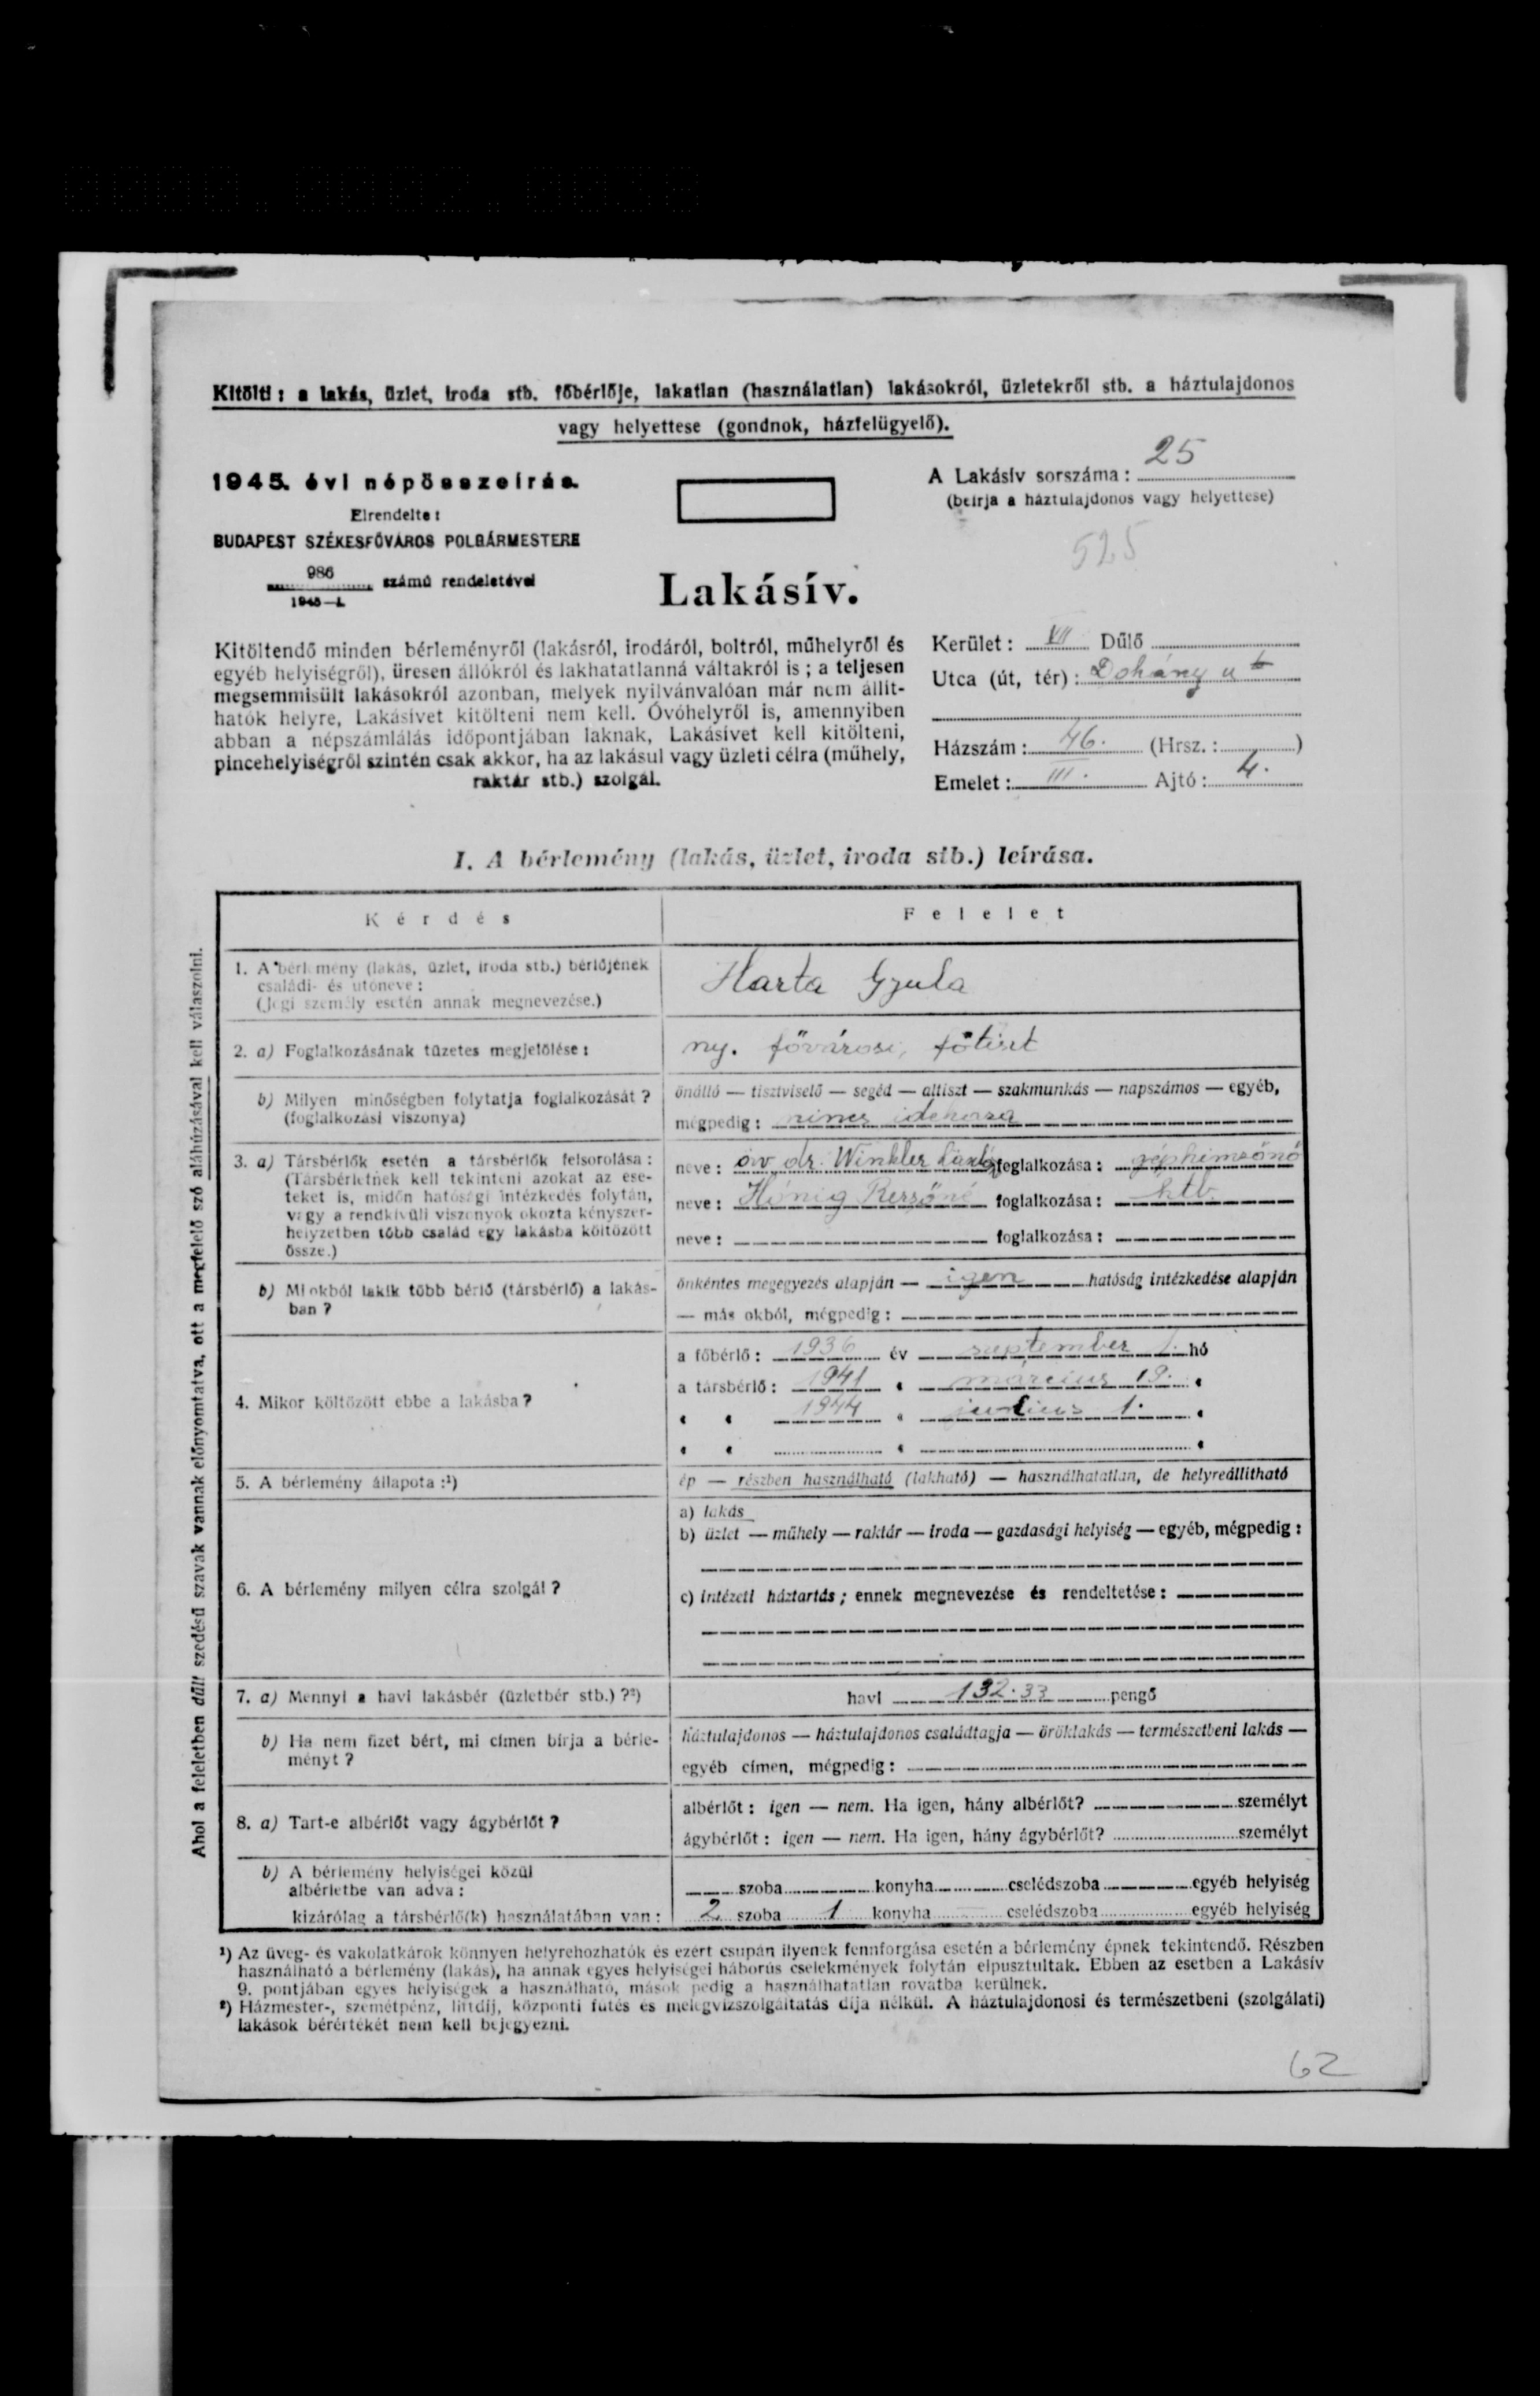 0000.0002.0038
Kitölti: a lakás, üzlet, iroda stb. főbérlője, lakatlan (használatlan) lakásokról, üzletekről stb. a háztulajdonos
vagy helyettese (gondnok, házfelügyelő).
1945. évi népösszeírás.
Elrendelte:
BUDAPEST SZÉKESFŐVÁROS POLGÁRMESTERE
986
1945—I. számú rendeletével
A Lakásív sorszáma: 25
(beírja a háztulajdonos vagy helyettese)
525
Lakásív.
Kitöltendő minden bérleményről (lakásról, irodáról, boltról, műhelyről és
egyéb helyiségről), üresen állókról és lakhatatlanná váltakról is; a teljesen
megsemmisült lakásokról azonban, melyek nyilvánvalóan már nem állít-
hatók helyre, Lakásívet kitölteni nem kell. Óvóhelyről is, amennyiben
abban a népszámlálás időpontjában laknak, Lakásívet kell kitölteni,
pincehelyiségről szintén csak akkor, ha az lakásul vagy üzleti célra (műhely,
raktár stb.) szolgál.
Kerület: VII Dűlő
Utca (út, tér): Dohány u
Házszám: 46. (Hrsz.: )
Emelet: III. Ajtó: 4.
I. A bérlemény (lakás, üzlet, iroda stb.) leírása.
Kérdés
Felelet
1. A bérlemény (lakás, üzlet, iroda stb.) bérlőjének
családi- és utóneve:
(Jogi személy esetén annak megnevezése.)
Harta Gyula
2. a) Foglalkozásának tüzetes megjelölése:
ny. fővárosi, főtiszt
b) Milyen minőségben folytatja foglalkozását?
(foglalkozási viszonya)
önálló — tisztviselő — segéd — altiszt — szakmunkás — napszámos — egyéb,
mégpedig: nincs
3. a) Társbérlők esetén a társbérlők felsorolása:
(Társbérletnek kell tekinteni azokat az ese-
teket is, midőn hatósági intézkedés folytán,
vagy a rendkívüli viszonyok okozta kényszer-
helyzetben több család egy lakásba költözött
össze.)
neve: öv dr. Winkler foglalkozása: géphimzőnő
neve: Hönig Rezsőné foglalkozása: htb.
neve: foglalkozása:
b) Mi okból lakik több bérlő (társbérlő) a lakás-
ban?
önkéntes megegyezés alapján — igen hatóság intézkedése alapján
— más okból, mégpedig:
4. Mikor költözött ebbe a lakásba?
a főbérlő: 1936 év szeptember 1. hó
a társbérlő: 1941 " március 19. "
" " 1944 " 1. "
" " "
5. A bérlemény állapota:¹)
ép — részben használható (lakható) — használhatatlan, de helyreállítható
6. A bérlemény milyen célra szolgál?
a) lakás
b) üzlet — műhely — raktár — iroda — gazdasági helyiség — egyéb, mégpedig:
c) intézeti háztartás; ennek megnevezése és rendeltetése:
7. a) Mennyi a havi lakásbér (üzletbér stb.)?²)
havi 132.33 pengő
b) Ha nem fizet bért, mi címen bírja a bérle-
ményt?
háztulajdonos — háztulajdonos családtagja — öröklakás — természetbeni lakás —
egyéb címen, mégpedig:
8. a) Tart-e albérlőt vagy ágybérlőt?
albérlőt: igen — nem. Ha igen, hány albérlőt? személyt
ágybérlőt: igen — nem. Ha igen, hány ágybérlőt? személyt
b) A bérlemény helyiségei közül
albérletbe van adva:
szoba konyha cselédszoba egyéb helyiség
kizárólag a társbérlő(k) használatában van:
2 szoba 1 konyha cselédszoba egyéb helyiség
Ahol a feleletben dűlt szedésű szavak vannak előnyomtatva, ott a megfelelő szó aláhúzásával kell válaszolni.
¹) Az üveg- és vakolatkárok könnyen helyrehozhatók és ezért csupán ilyenek fennforgása esetén a bérlemény épnek tekintendő. Részben
használható a bérlemény (lakás), ha annak egyes helyiségei háborús cselekmények folytán elpusztultak. Ebben az esetben a Lakásív
9. pontjában egyes helyiségek a használható, mások pedig a használhatatlan rovatba kerülnek.
²) Házmester-, szemétpénz, liftdíj, központi fűtés és melegvízszolgáltatás díja nélkül. A háztulajdonosi és természetbeni (szolgálati)
lakások bérértékét nem kell bejegyezni.
62